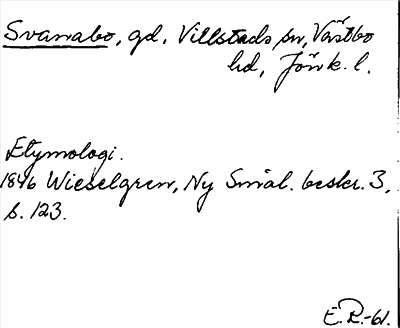 Svanabo, gd. Villstads sn, Västbo
hd, Jönk. l.
Etymologi.
1846 Wieselgren, Ny Smål. beskr. 3,
s. 123.
E.R.-61.